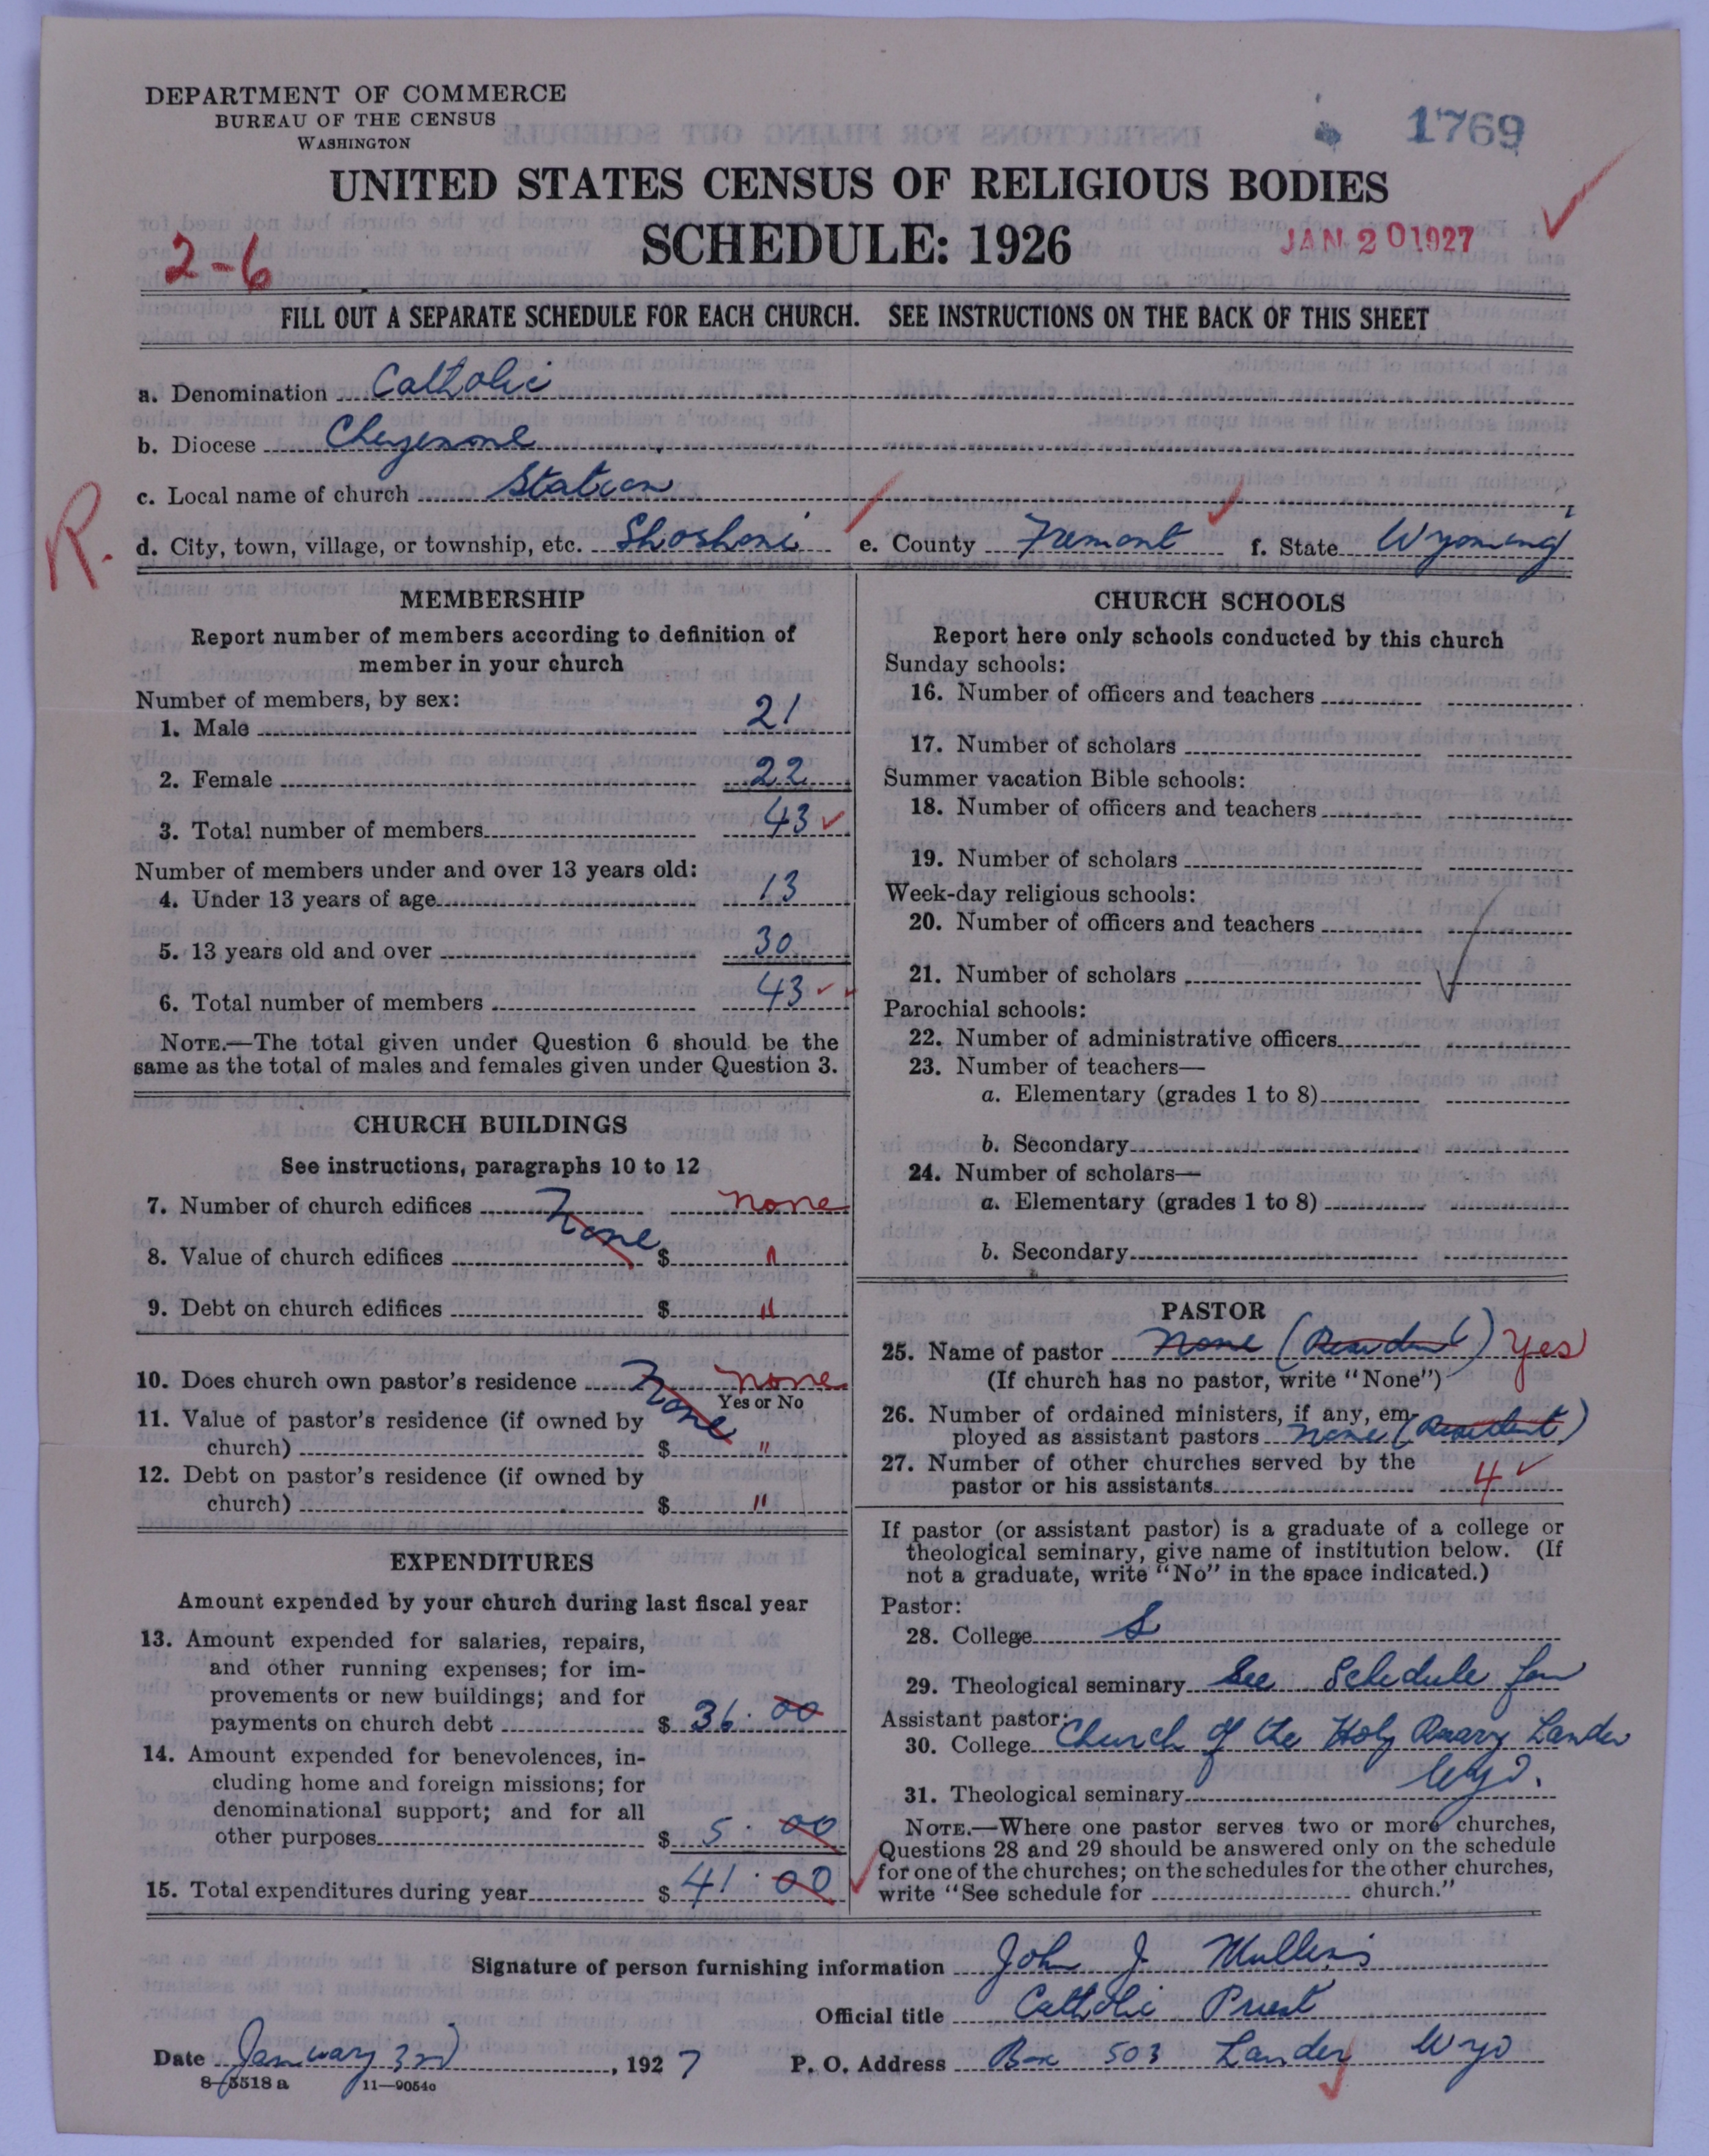 DEPARTMENT OF COMMERCE
BUREAU OF THE CENSUS
WASHINGTON
1769
UNITED STATES CENSUS OF RELIGIOUS BODIES
SCHEDULE: 1926
JAN 20 1927
2-6
FILL OUT A SEPARATE SCHEDULE FOR EACH CHURCH. SEE INSTRUCTIONS ON THE BACK OF THIS SHEET
a. Denomination Catholic
b. Diocese Cheyenne
c. Local name of church Station
R.
d. City, town, village, or township, etc. Shoshoni e. County Fremont f. State Wyoming
MEMBERSHIP
Report number of members according to definition of
member in your church
Number of members, by sex:
1. Male 21
2. Female 22
3. Total number of members 43
Number of members under and over 13 years old:
4. Under 13 years of age 13
5. 13 years old and over 30
6. Total number of members 43
NOTE.—The total given under Question 6 should be the
same as the total of males and females given under Question 3.
CHURCH BUILDINGS
See instructions, paragraphs 10 to 12
7. Number of church edifices None none
8. Value of church edifices $ "
9. Debt on church edifices $ "
10. Does church own pastor's residence None none
Yes or No
11. Value of pastor's residence (if owned by
church) $ "
12. Debt on pastor's residence (if owned by
church) $ "
EXPENDITURES
Amount expended by your church during last fiscal year
13. Amount expended for salaries, repairs,
and other running expenses; for im-
provements or new buildings; and for
payments on church debt $ 36.00
14. Amount expended for benevolences, in-
cluding home and foreign missions; for
denominational support; and for all
other purposes $ 5.00
15. Total expenditures during year $ 41.00
CHURCH SCHOOLS
Report here only schools conducted by this church
Sunday schools:
16. Number of officers and teachers
17. Number of scholars
Summer vacation Bible schools:
18. Number of officers and teachers
19. Number of scholars
Week-day religious schools:
20. Number of officers and teachers
21. Number of scholars
Parochial schools:
22. Number of administrative officers
23. Number of teachers—
a. Elementary (grades 1 to 8)
b. Secondary
24. Number of scholars—
a. Elementary (grades 1 to 8)
b. Secondary
PASTOR
25. Name of pastor None (Resident) Yes
(If church has no pastor, write "None")
26. Number of ordained ministers, if any, em-
ployed as assistant pastors None (Resident)
27. Number of other churches served by the
pastor or his assistants 4
If pastor (or assistant pastor) is a graduate of a college or
theological seminary, give name of institution below. (If
not a graduate, write "No" in the space indicated.)
Pastor:
28. College S
29. Theological seminary See Schedule for
Assistant pastor:
30. College Church of the Holy Rosary Lander
Wyo.
31. Theological seminary
NOTE.—Where one pastor serves two or more churches,
Questions 28 and 29 should be answered only on the schedule
for one of the churches; on the schedules for the other churches,
write "See schedule for church."
Signature of person furnishing information John J. Mullens
Official title Catholic Priest
Date January 3rd, 1927 P. O. Address Box 503 Lander Wyo
8—5518 a 11—9054c